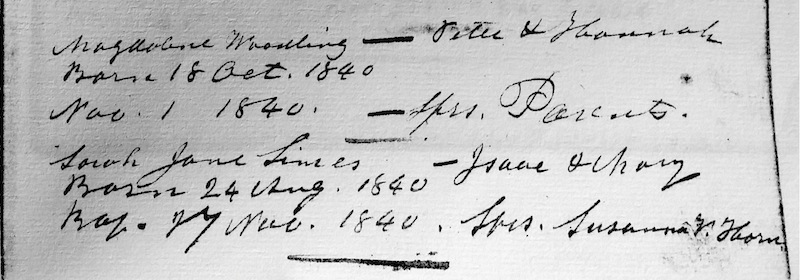 Magdalene Woodling — Peter & Hannah
Born 18 Oct. 1840
Nov. 1 1840. — Sprs. Parents.
Sarah Jane Simes — Isaac & Mary
Born 24 Aug. 1840
Bap. 27 Nov. 1840. Sprs. Susanna